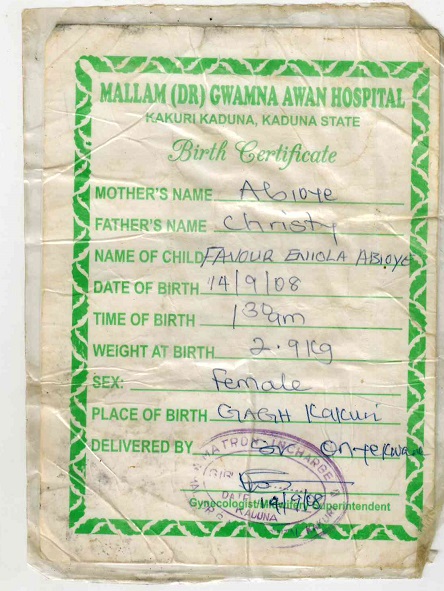 MALLAM (DR) GWAMNA AWAN HOSPITAL
KAKURI KADUNA, KADUNA STATE
Birth Certificate
MOTHER'S NAME Abioye
FATHER'S NAME Christy
NAME OF CHILD FAVOUR ENIOLA ABIOYE
DATE OF BIRTH 14/9/08
TIME OF BIRTH 1 30am
WEIGHT AT BIRTH 2.9kg
SEX: Female
PLACE OF BIRTH GAGH Kakuri
DELIVERED BY
MATRON INCHARGE
DATE 14/9/08
KADUNA
Gynecologist/Midwife/Superintendent